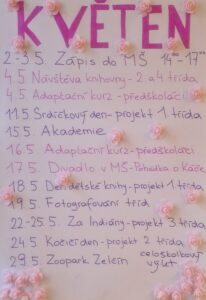 KVĚTEN
2-3.5. Zápis do MŠ 14⁰⁰-17⁰⁰
4.5 Návštěva knihovny - 2. a 4 třída
4.5 Adaptační kurz - předškoláci
11.5. Srdíčkový den - projekt 1 třída
15.5. Akademie
16.5. Adaptační kurz - předškoláci
17.5. Divadlo v MŠ - Pohádka o Káče
18.5 Den dětské knihy - projekt 1 třída
19.5 Fotografování tříd
22-25.5. Za Indiány - projekt 3 třída
24.5 - projekt 2 třída
29.5 Zoopark Zelčín celoškolkový výlet